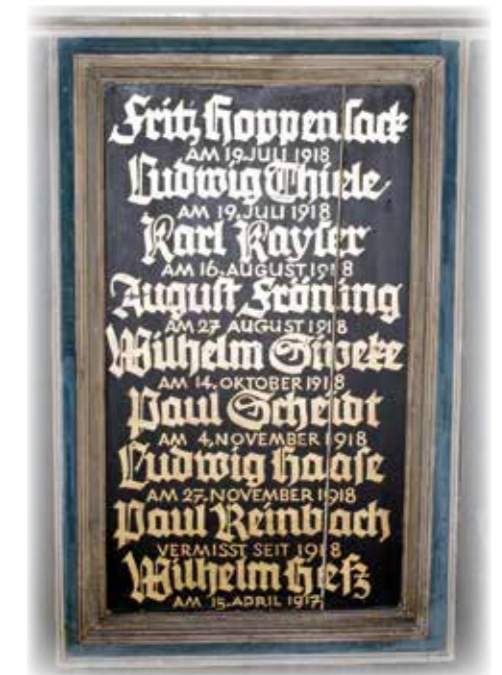 Fritz Hoppensack
AM 19. JULI 1918
Ludwig Thiele
AM 19. JULI 1918
Karl Kayser
AM 16. AUGUST 1918
August Fröning
AM 27 AUGUST 1918
Wilhelm
AM 14. OKTOBER 1918
Paul Scheidt
AM 4. NOVEMBER 1918
Ludwig Haase
AM 27. NOVEMBER 1918
Paul Reinbach
VERMISST SEIT 1918
Wilhelm Heß
AM 15. APRIL 1917